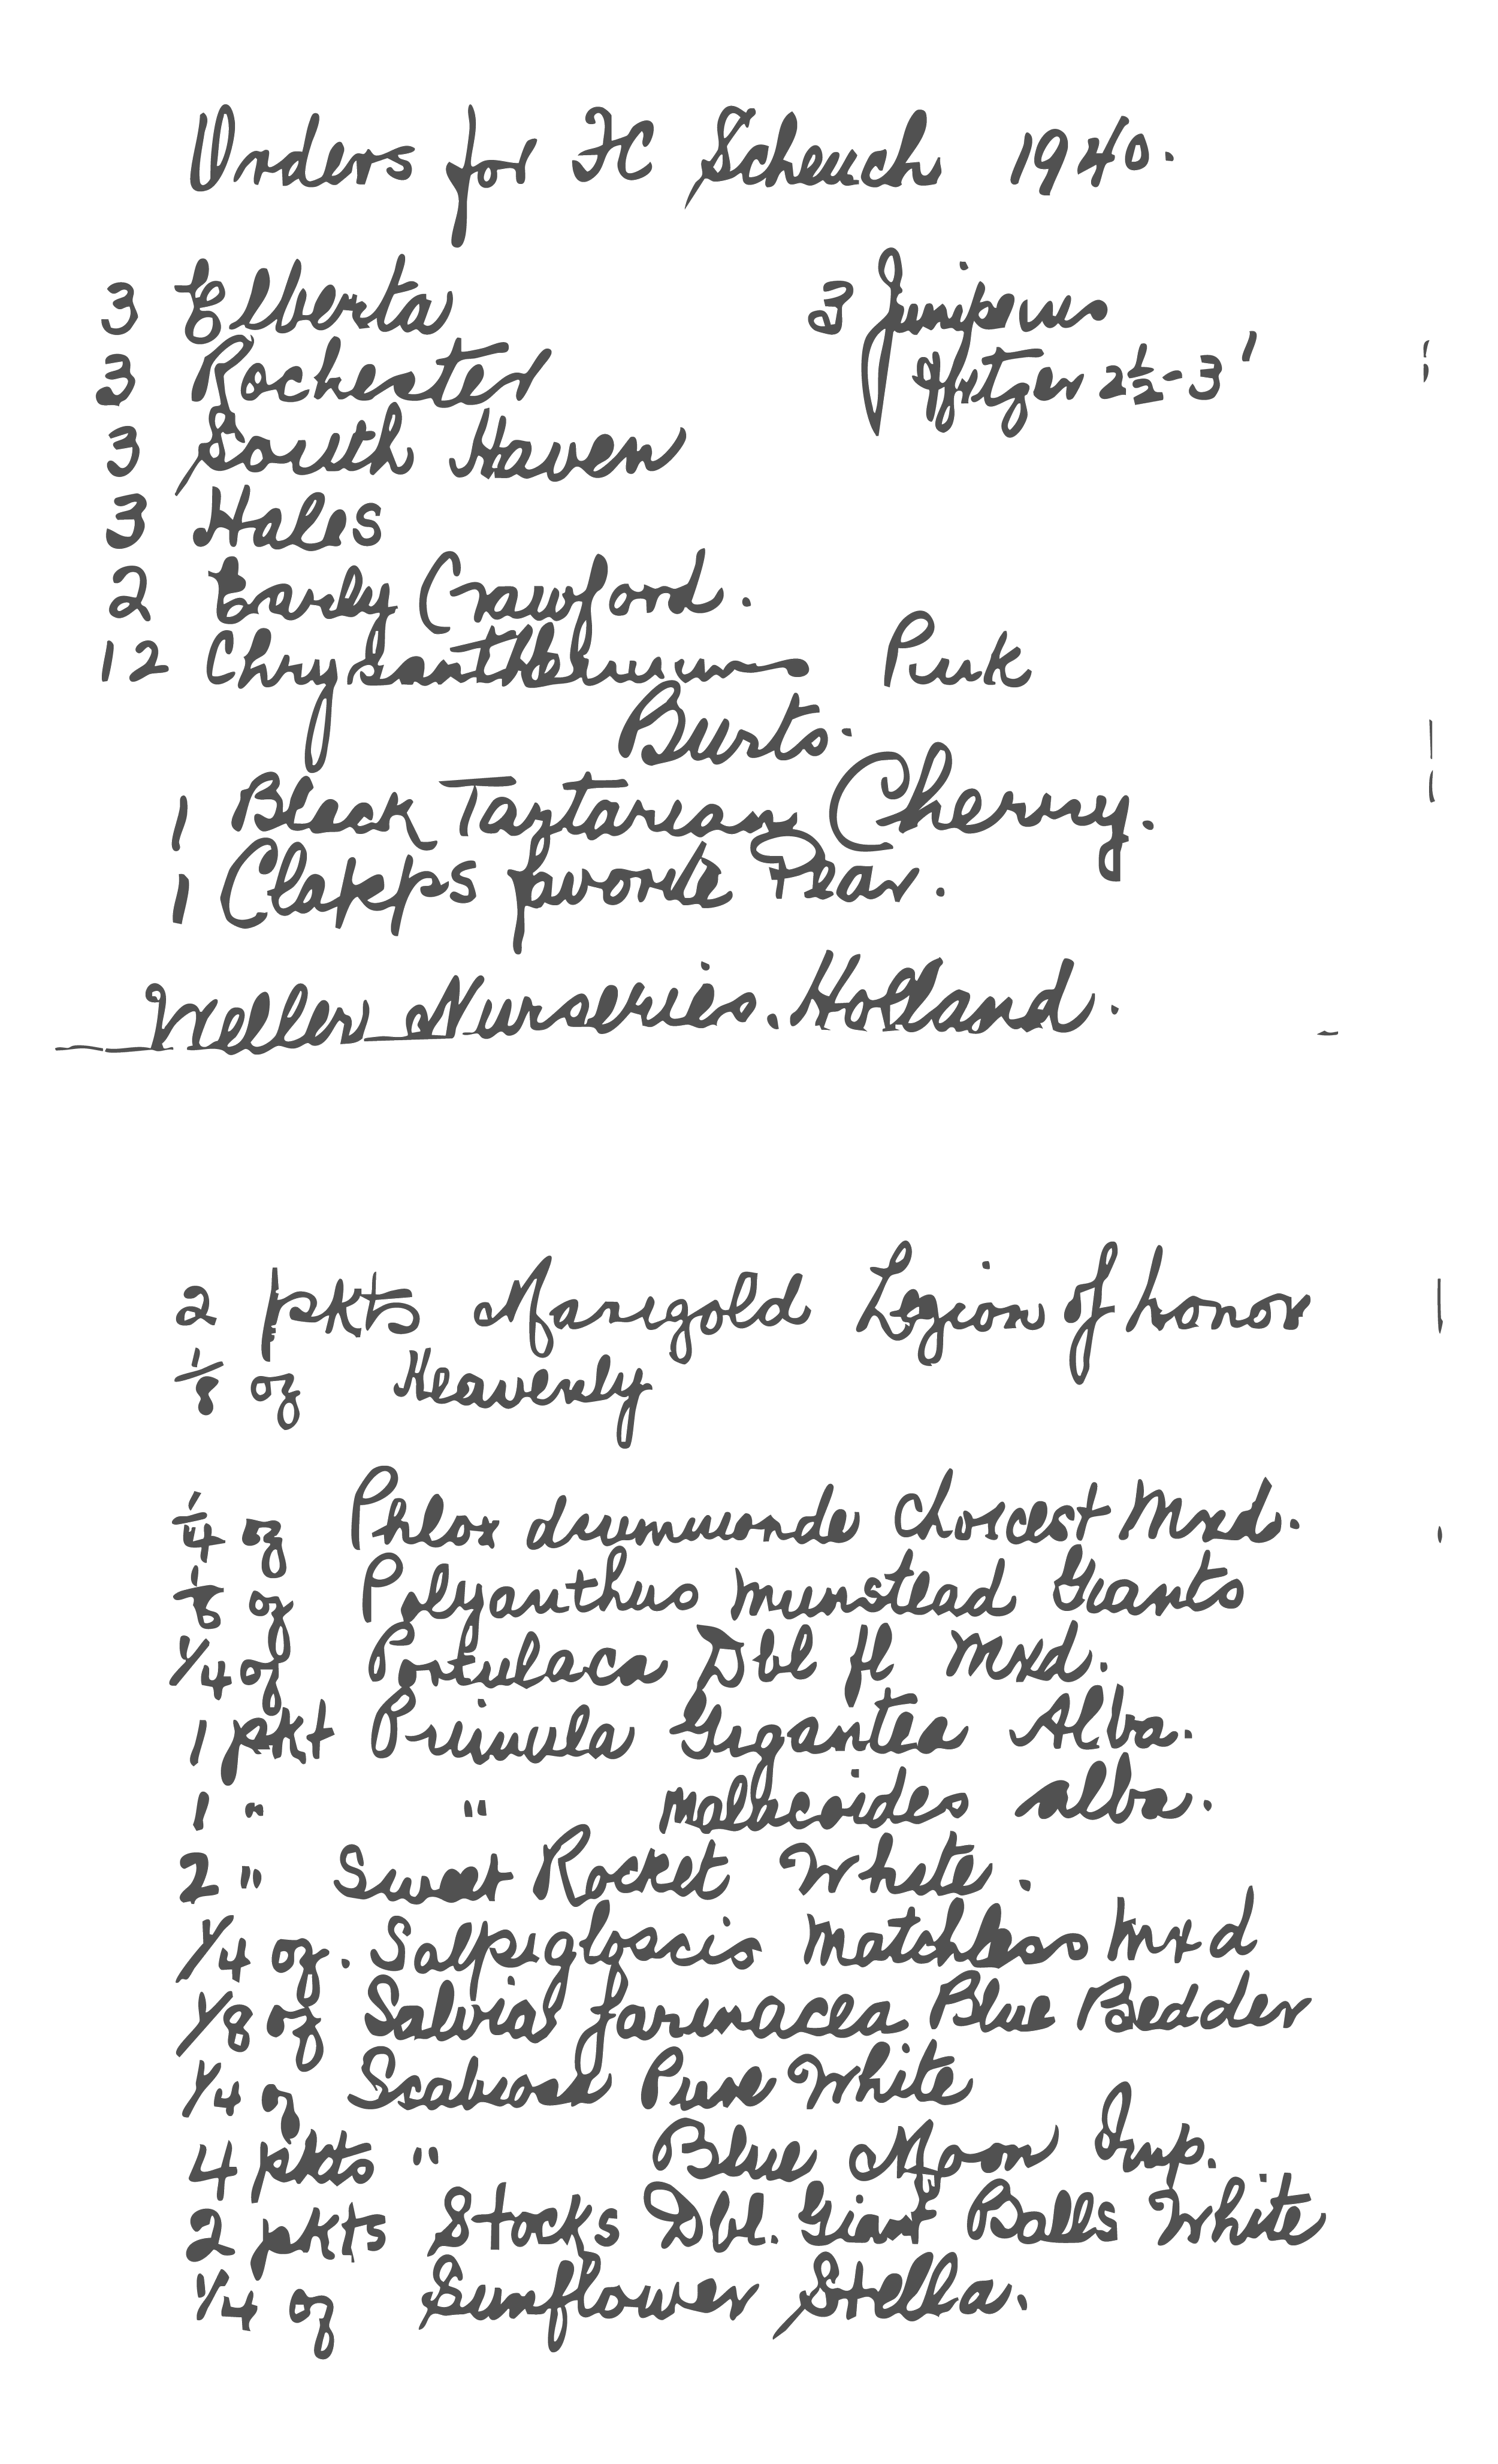 Orders for H Schaud 1940.
3 Elberta
3 Rochester
3 South Haven
3 Hales
2 Early Crawford.
12 Chrysanthemum Park
Bursts.
3 Junipers
Pfitzer 2½-3'
1 Bear Tartarian Cherry.
1 Clapps favorite Pear.
Wallen Nurserie. Holland.
2 pkts Marigold Legion of honor
⅛ oz Kennedy
¼ oz Phlox drummondi Dwarf Mxt.
⅛ oz Polyanthus mixed Giants
¼ oz Petunia Dbl fl Mxd.
1 pkt Primula Gigantea Alba.
1 " " malacoides alba.
2 " Sweet Rocket White.
¼ oz. Salpiglossis mxd
⅛ oz Salvia farinacea Blue Bedder
¼ oz Scabiosa Pure White
4 pkts " Blue Moon Imp.
2 pkts Stocks Dbl. Giant White
¼ oz Sunflower Stella.